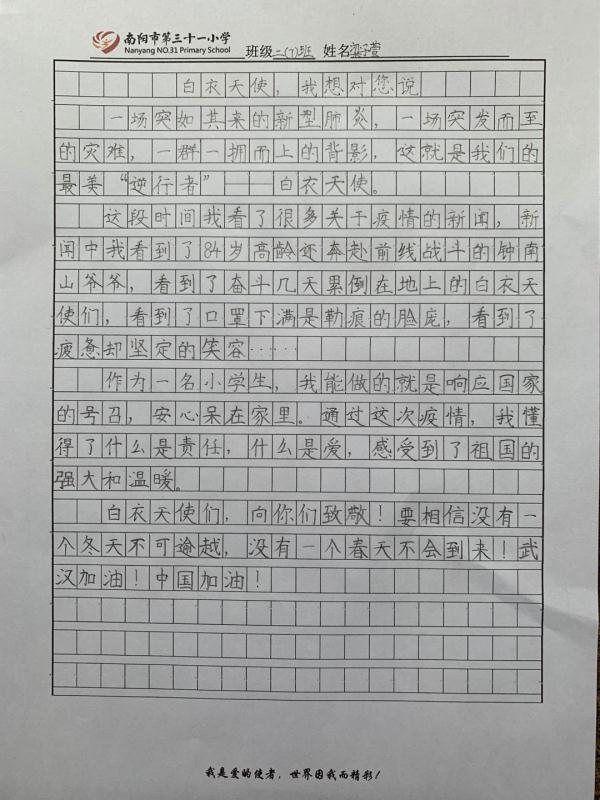 南阳市第三十一小学
Nanyang NO.31 Primary School
班级二(7)班 姓名梁子萱
白衣天使，我想对您说
一场突如其来的新型肺炎，一场突发而至
的灾难，一群一拥而上的背影，这就是我们的
最美“逆行者”——白衣天使。
这段时间我看了很多关于疫情的新闻，新
闻中我看到了84岁高龄还奔赴前线战斗的钟南
山爷爷，看到了奋斗几天累倒在地上的白衣天
使们，看到了口罩下满是勒痕的脸庞，看到了
疲惫却坚定的笑容……
作为一名小学生，我能做的就是响应国家
的号召，安心呆在家里。通过这次疫情，我懂
得了什么是责任，什么是爱，感受到了祖国的
强大和温暖。
白衣天使们，向你们致敬！要相信没有一
个冬天不可逾越，没有一个春天不会到来！武
汉加油！中国加油！
我是爱的使者，世界因我而精彩！